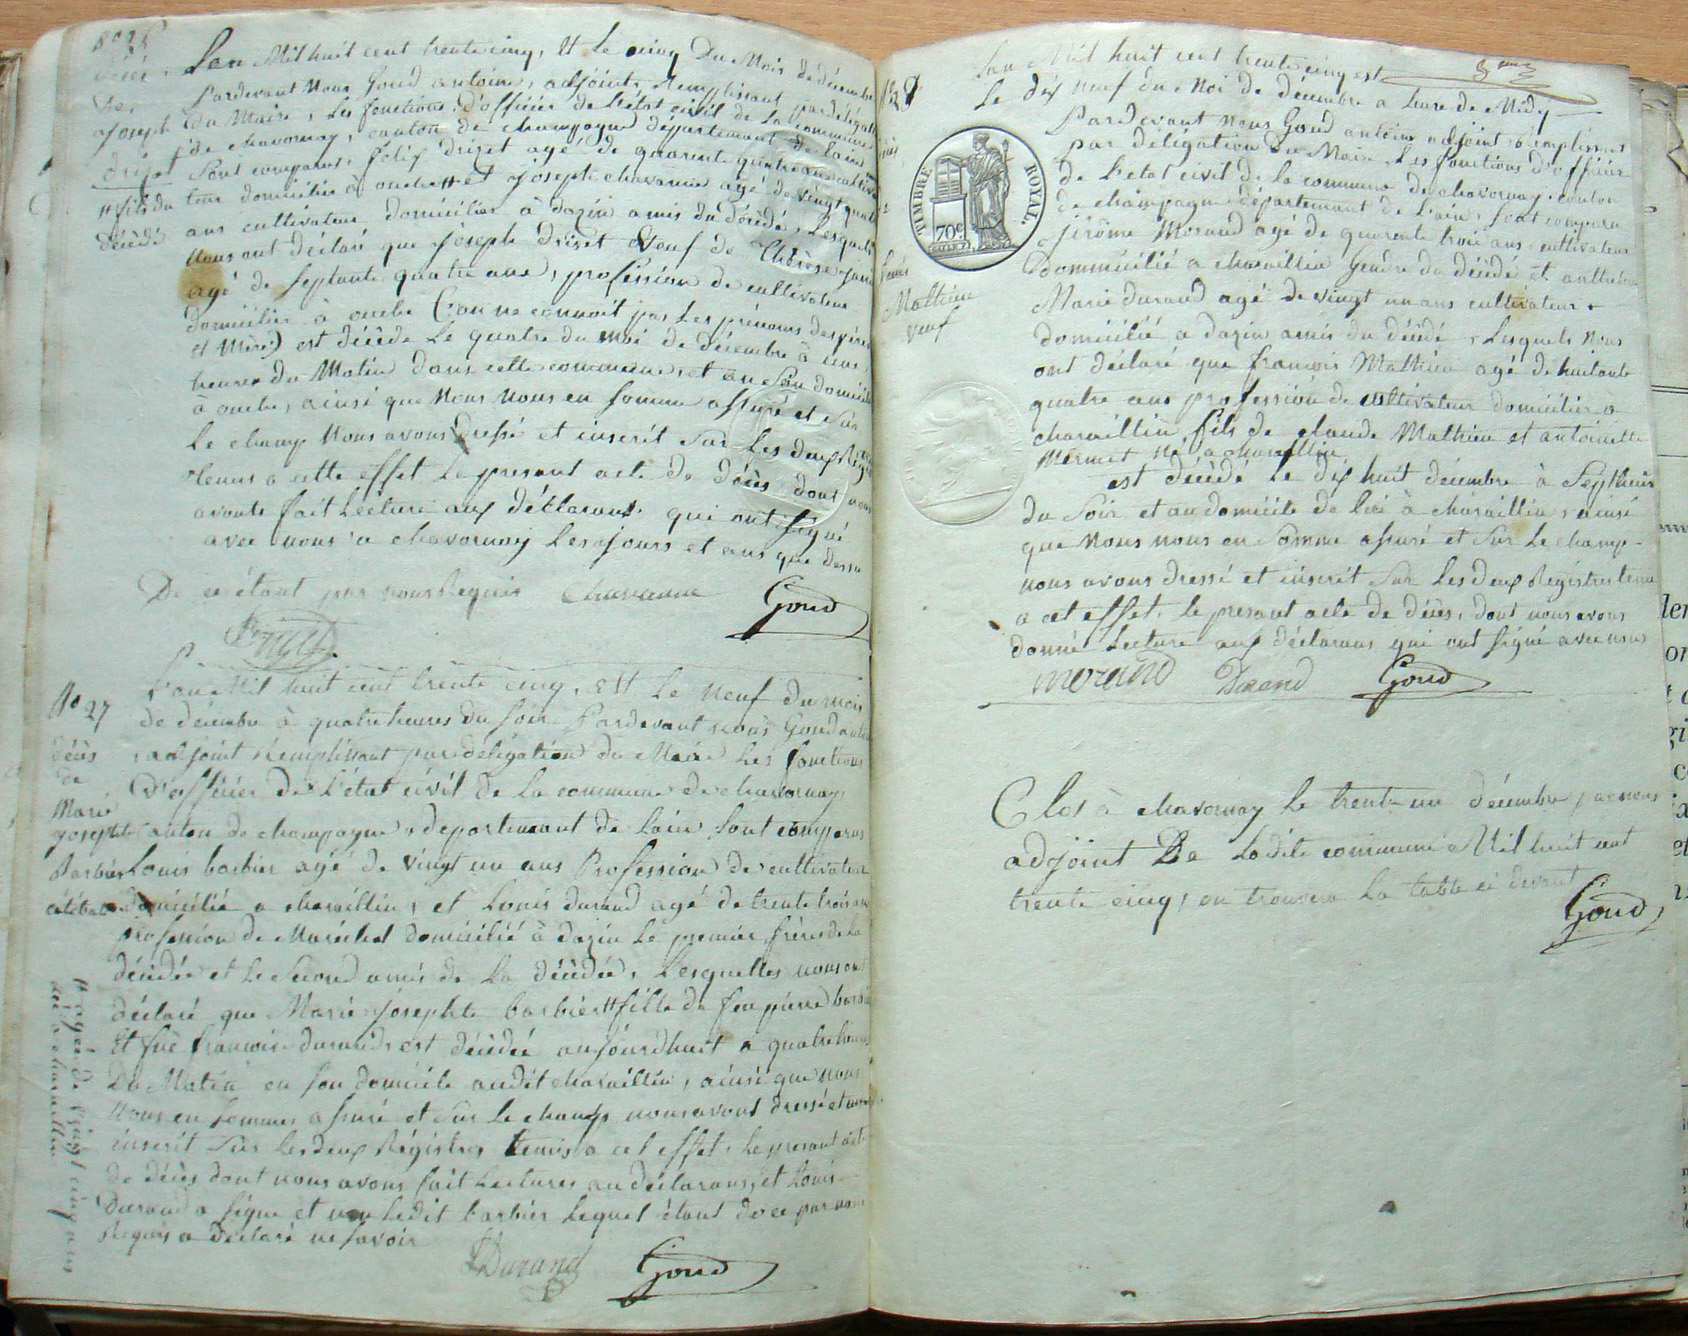 décè
de
joseph
drizet
# fils du
décédé
L'an Mil huit cent trente cinq, et le cinq Du Mois de décembre
Pardevant Nous Goud antoine, adjoint, Remplissant par délégation
du Maire, les fonctions d'officier de l'état civil de la commune
de chavornay, canton de champagne département de lain
sont comparus, félix drizet agé de quarente quatre ans cultiva
teur domicilié à ouche # et joseph chavanne agé de vingt quatre
ans cultivateur domicilier à dazin amis du décédé, lesquels
nous ont déclaré que joseph drizet veuf de Thérèse
agé de septante quatre ans, profession de cultivateur
domicilier à ouche (on ne connoit pas les prénoms des père
et Mère) est décédé le quatre du moi de décembre à onze
heures du Matin dans cette commune, et en son domicile
à ouche, ainsi que Nous nous en somme assuré et sur
le champ Nous avons dressé et inscrit sur les deux Régis
tenus a cette effet le present acte de décès dont nous
avons fait lecture aux déclarant qui ont signé
avec nous a chavornay les jours et ans que dessu
De ce étant par nous Requis chavanne Goud
N° 27
décès
de
Marie
josephte
Barbier
célibataire
L'an Mil huit cent trente cinq, Et le neuf du mois
de décembre à quatre heures du soir Pardevant nous Goud antoi
, adjoint Remplissant par délégation du Maire les fonctions
d'officier de L'état civil de la commune de chavornay
canton de champagne, departement de lain sont comparus
Louis barbier agé de vingt un ans Profession de cultivateur
domicilié a charaillin, et Louis durand agé de trente trois ans
profession de Maréchal domicilié à dazin le premier frère de la
décédée et le second amis de la décédée, Lesquelles nous ont
déclaré que Marie josephte barbier # fille de feu pierre barbi
Et fue françoise durand, est décédée aujourdhuit a quatre heures
Du Matin en son domicile audit charaillin, ainsi que nous
nous en sommes assuré et sur le champ nous avons dressé et
inscrit sur les deux Régistres tenus a cet effet, le present acte
de décès dont nous avons fait lectures au déclarans, et Louis
Durand a signé et non ledit barbier lequel étant de ce par nous
Requis a déclaré ne savoir
# agée de vingt cinq ans
née à charaillin
Durand Goud
L'an Mil huit cent trente cinq et
Le dix neuf du Moi de décembre a heure de Midy
Pardevant nous Goud antoine adjoint Remplissant
par délégation du Maire les fonctions d'officier
de l'état civil de la commune de chavornay canton
de champagne département de l'ain, sont comparu
jérôme Morand agé de quarente trois ans cultivateur
domicilié a charaillin Gendre du décédé et anthelme
Marie durand agé de vingt un ans cultivateur
domicilié a dazin amis du décédé, Lesquels nous
ont déclaré que françois Mathieu agé de huitante
quatre ans profession de cultivateur domicilier a
charaillin, fils de claude Mathieu et antoinette
Mermet né a charaillin,
est décédé le dix huit décembre à Sept heure
du soir et au domicile de lui à charaillin, ainsi
que Nous nous en somme assuré et sur le champ
nous avons dressé et inscrit sur les deux Régistres tenu
a cet effet, le present acte de décès, dont nous avons
donné lecture aux déclarans qui ont signé avec nous
Mathieu
veuf
TIMBRE ROYAL.
70c
morand Durand Goud
Clos à chavornay le trente un décembre par nous
adjoint De Ladite commune Mil huit cent
trente cinq, on trouvera la table ci devant
Goud